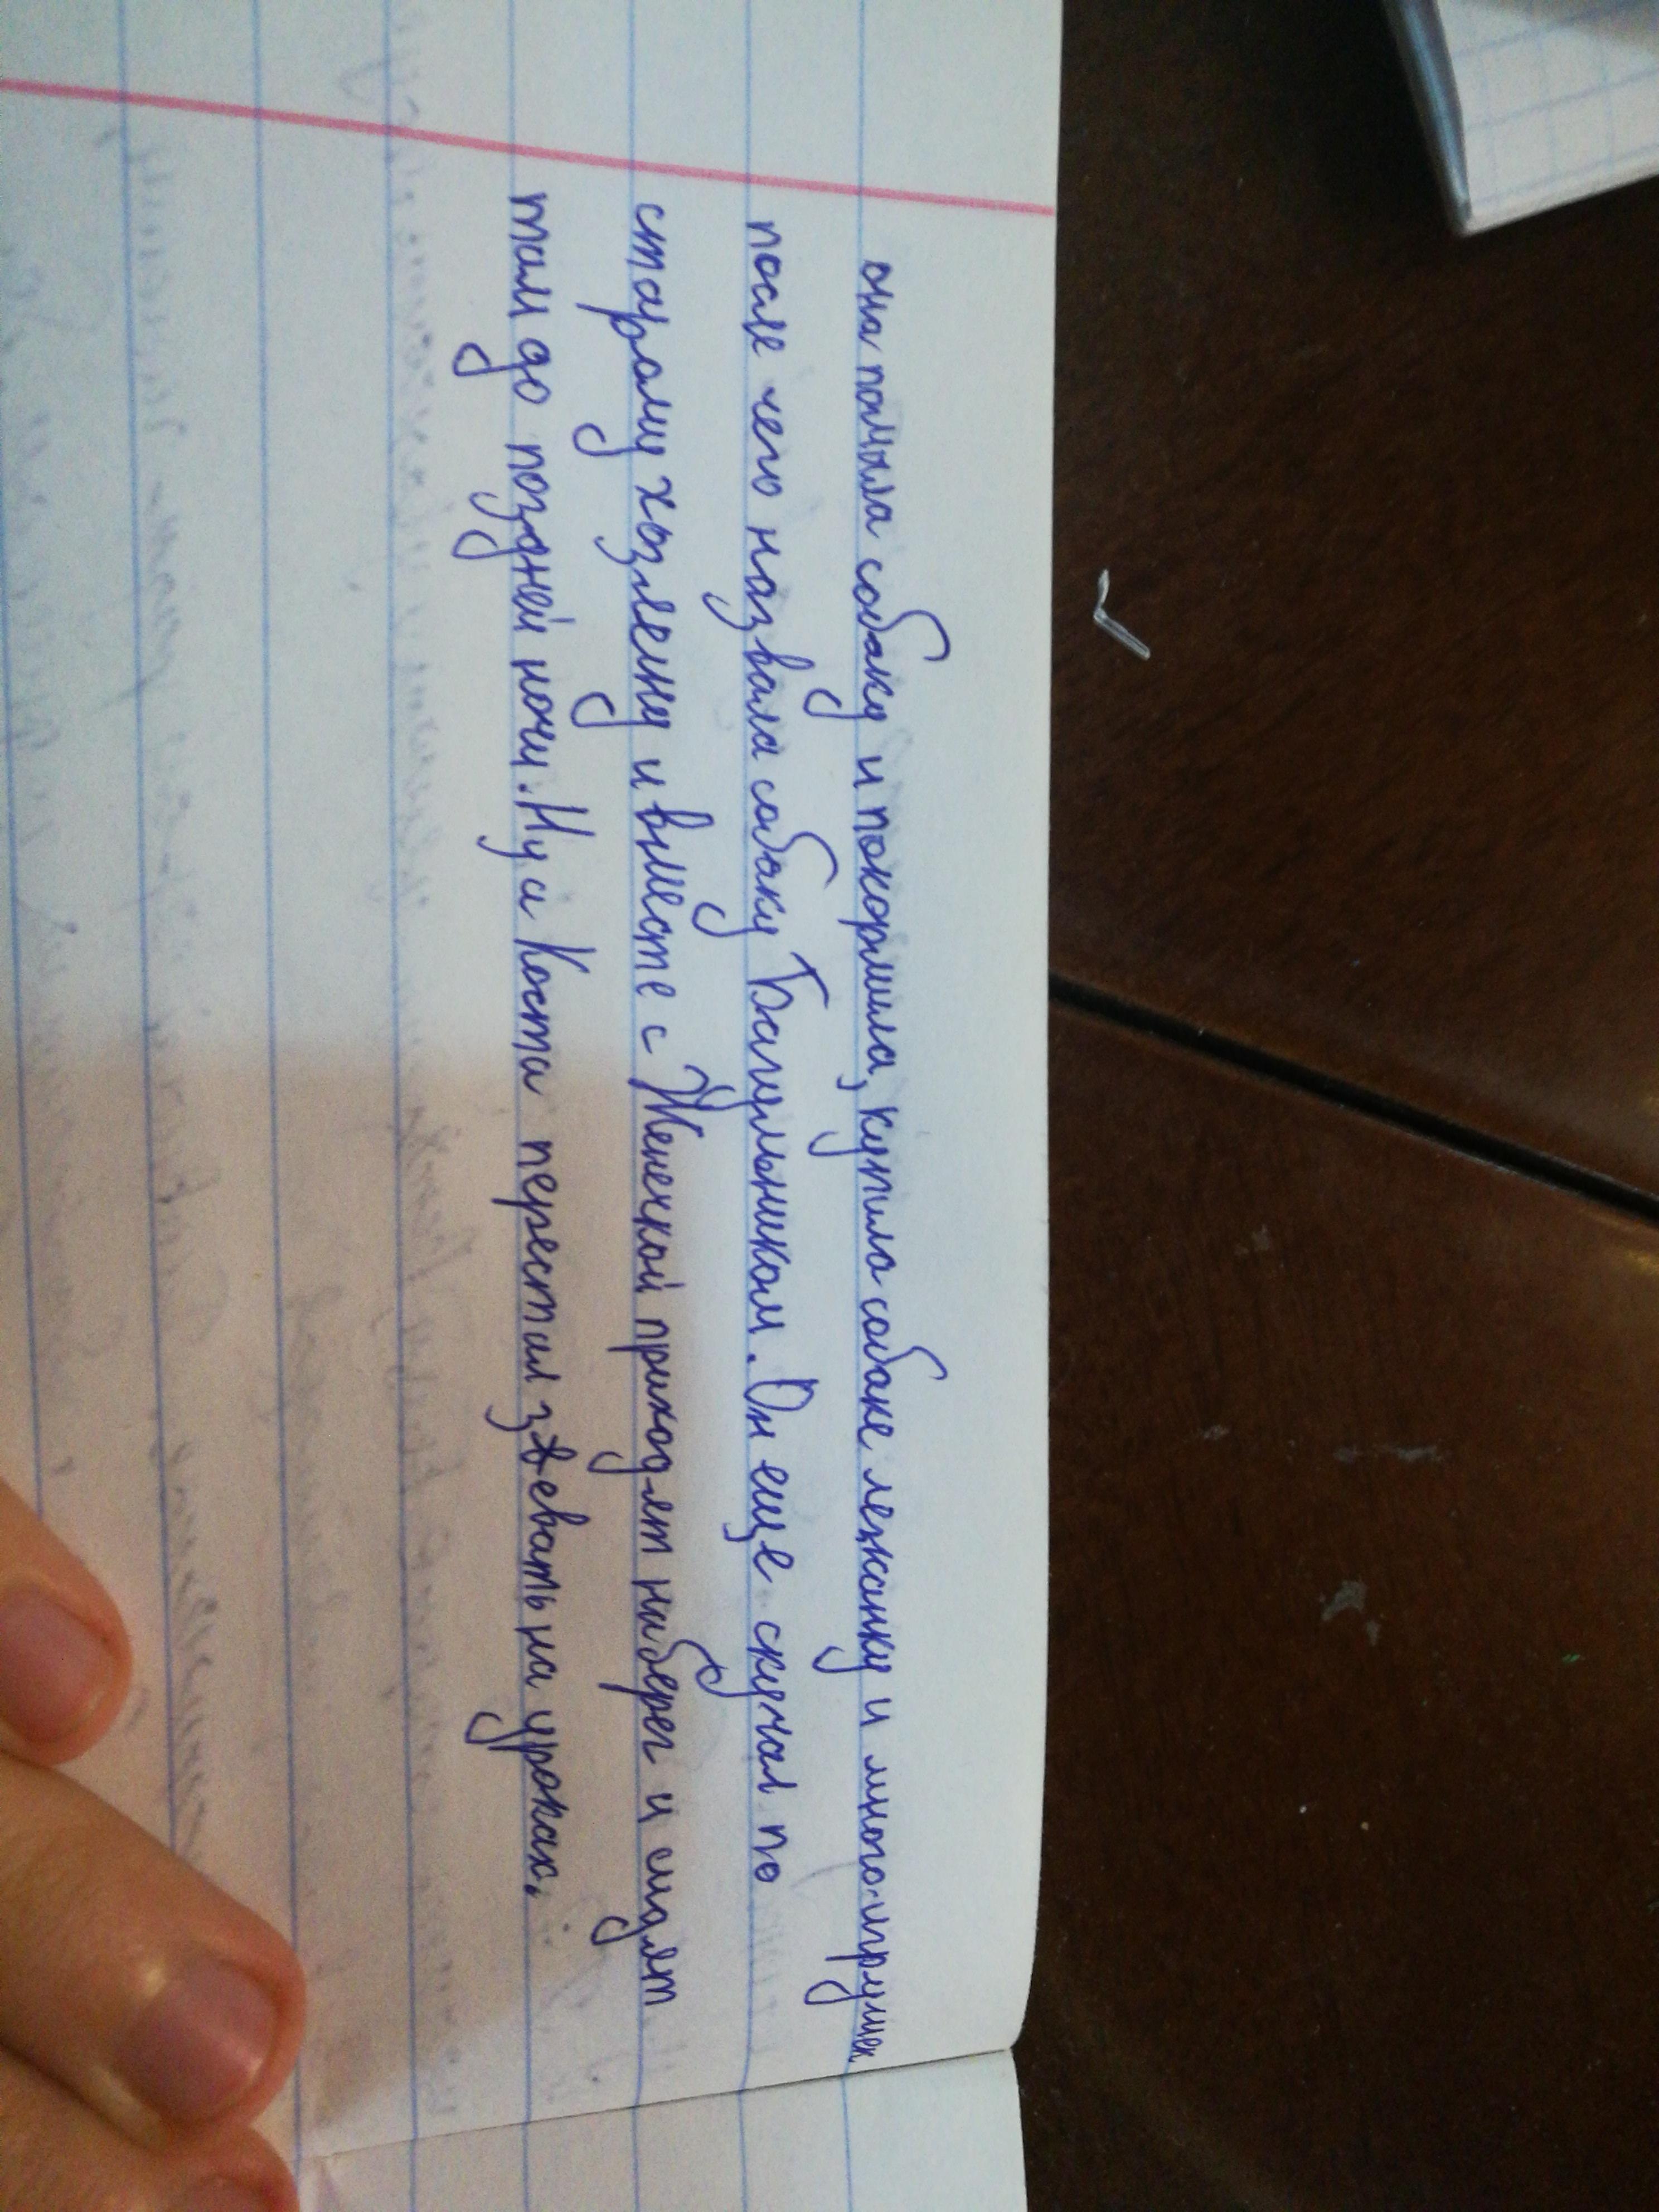 она помыла собаку и покормила, купила собаке лежанку и много игрушек
после чего назвала собаку Багульником. Он еще скучал по
старому хозяену и вместе с Женечкой приходят на берег и сидят
там до поздней ночи. Ну а Коста перестал зевать на уроках.